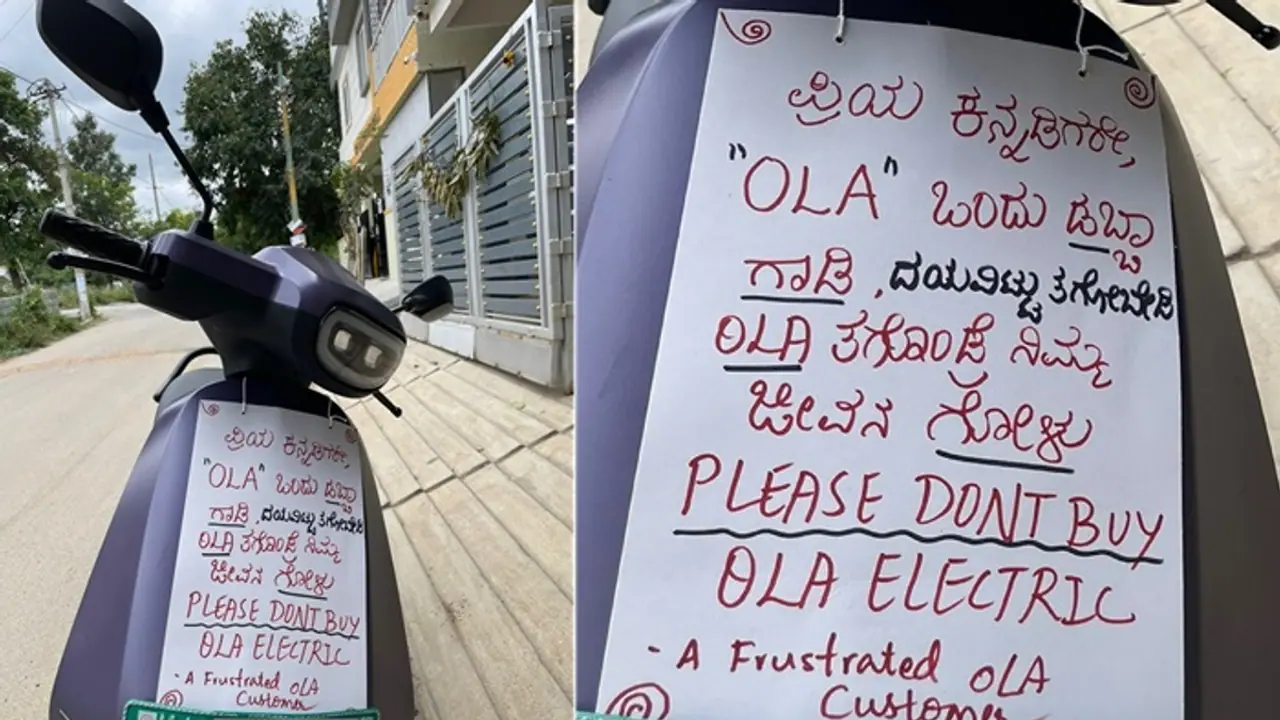 ಪ್ರಿಯ ಕನ್ನಡಿಗರೇ,
"OLA" ಒಂದು ಡಬ್ಬಾ
ಗಾಡಿ, ದಯವಿಟ್ಟು ತಗೋಬೇಡಿ
OLA ತಗೊಂಡ್ರೆ ನಿಮ್ಮ
ಜೀವನ ಗೋಳು
PLEASE DONT BUY
OLA ELECTRIC
- A Frustrated OLA
Customer
ಪ್ರಿಯ ಕನ್ನಡಿಗರೇ,
"OLA" ಒಂದು ಡಬ್ಬಾ
ಗಾಡಿ, ದಯವಿಟ್ಟು ತಗೋಬೇಡಿ
OLA ತಗೊಂಡ್ರೆ ನಿಮ್ಮ
ಜೀವನ ಗೋಳು
PLEASE DONT BUY
OLA ELECTRIC
- A Frustrated OLA
Customer